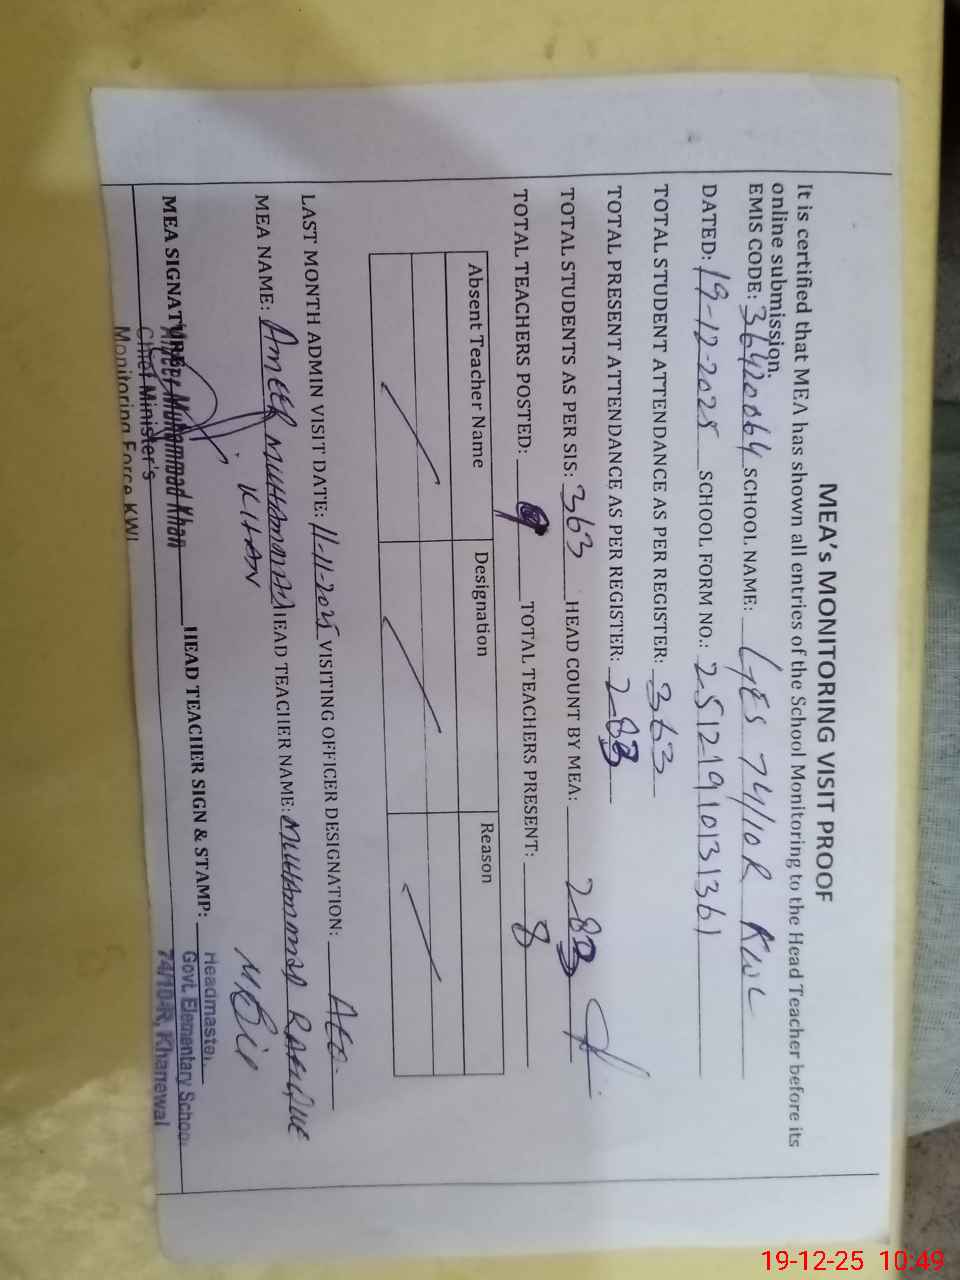 MEA's MONITORING VISIT PROOF
It is certified that MEA has shown all entries of the School Monitoring to the Head Teacher before its
online submission.
EMIS CODE: 36420064 SCHOOL NAME: GES 74/10R KWL
DATED: 19-12-2025 SCHOOL FORM NO.: 25121910131361
TOTAL STUDENT ATTENDANCE AS PER REGISTER: 363
TOTAL PRESENT ATTENDANCE AS PER REGISTER: 283
TOTAL STUDENTS AS PER SIS: 363 HEAD COUNT BY MEA: 283
TOTAL TEACHERS POSTED: TOTAL TEACHERS PRESENT: 8
Absent Teacher Name Designation Reason
LAST MONTH ADMIN VISIT DATE: 11-11-2025 VISITING OFFICER DESIGNATION: AEO
MEA NAME: AMEER MUHAMMAD HEAD TEACHER NAME: MUHAMMAD RAFIQUE
KHAN
MEA SIGNATURE: HEAD TEACHER SIGN & STAMP:
Ameer Muhammad Khan
Chief Minister's
Monitoring Force KWL
Headmaster
Govt. Elementary School
74/10-R, Khanewal
19-12-25 10:49